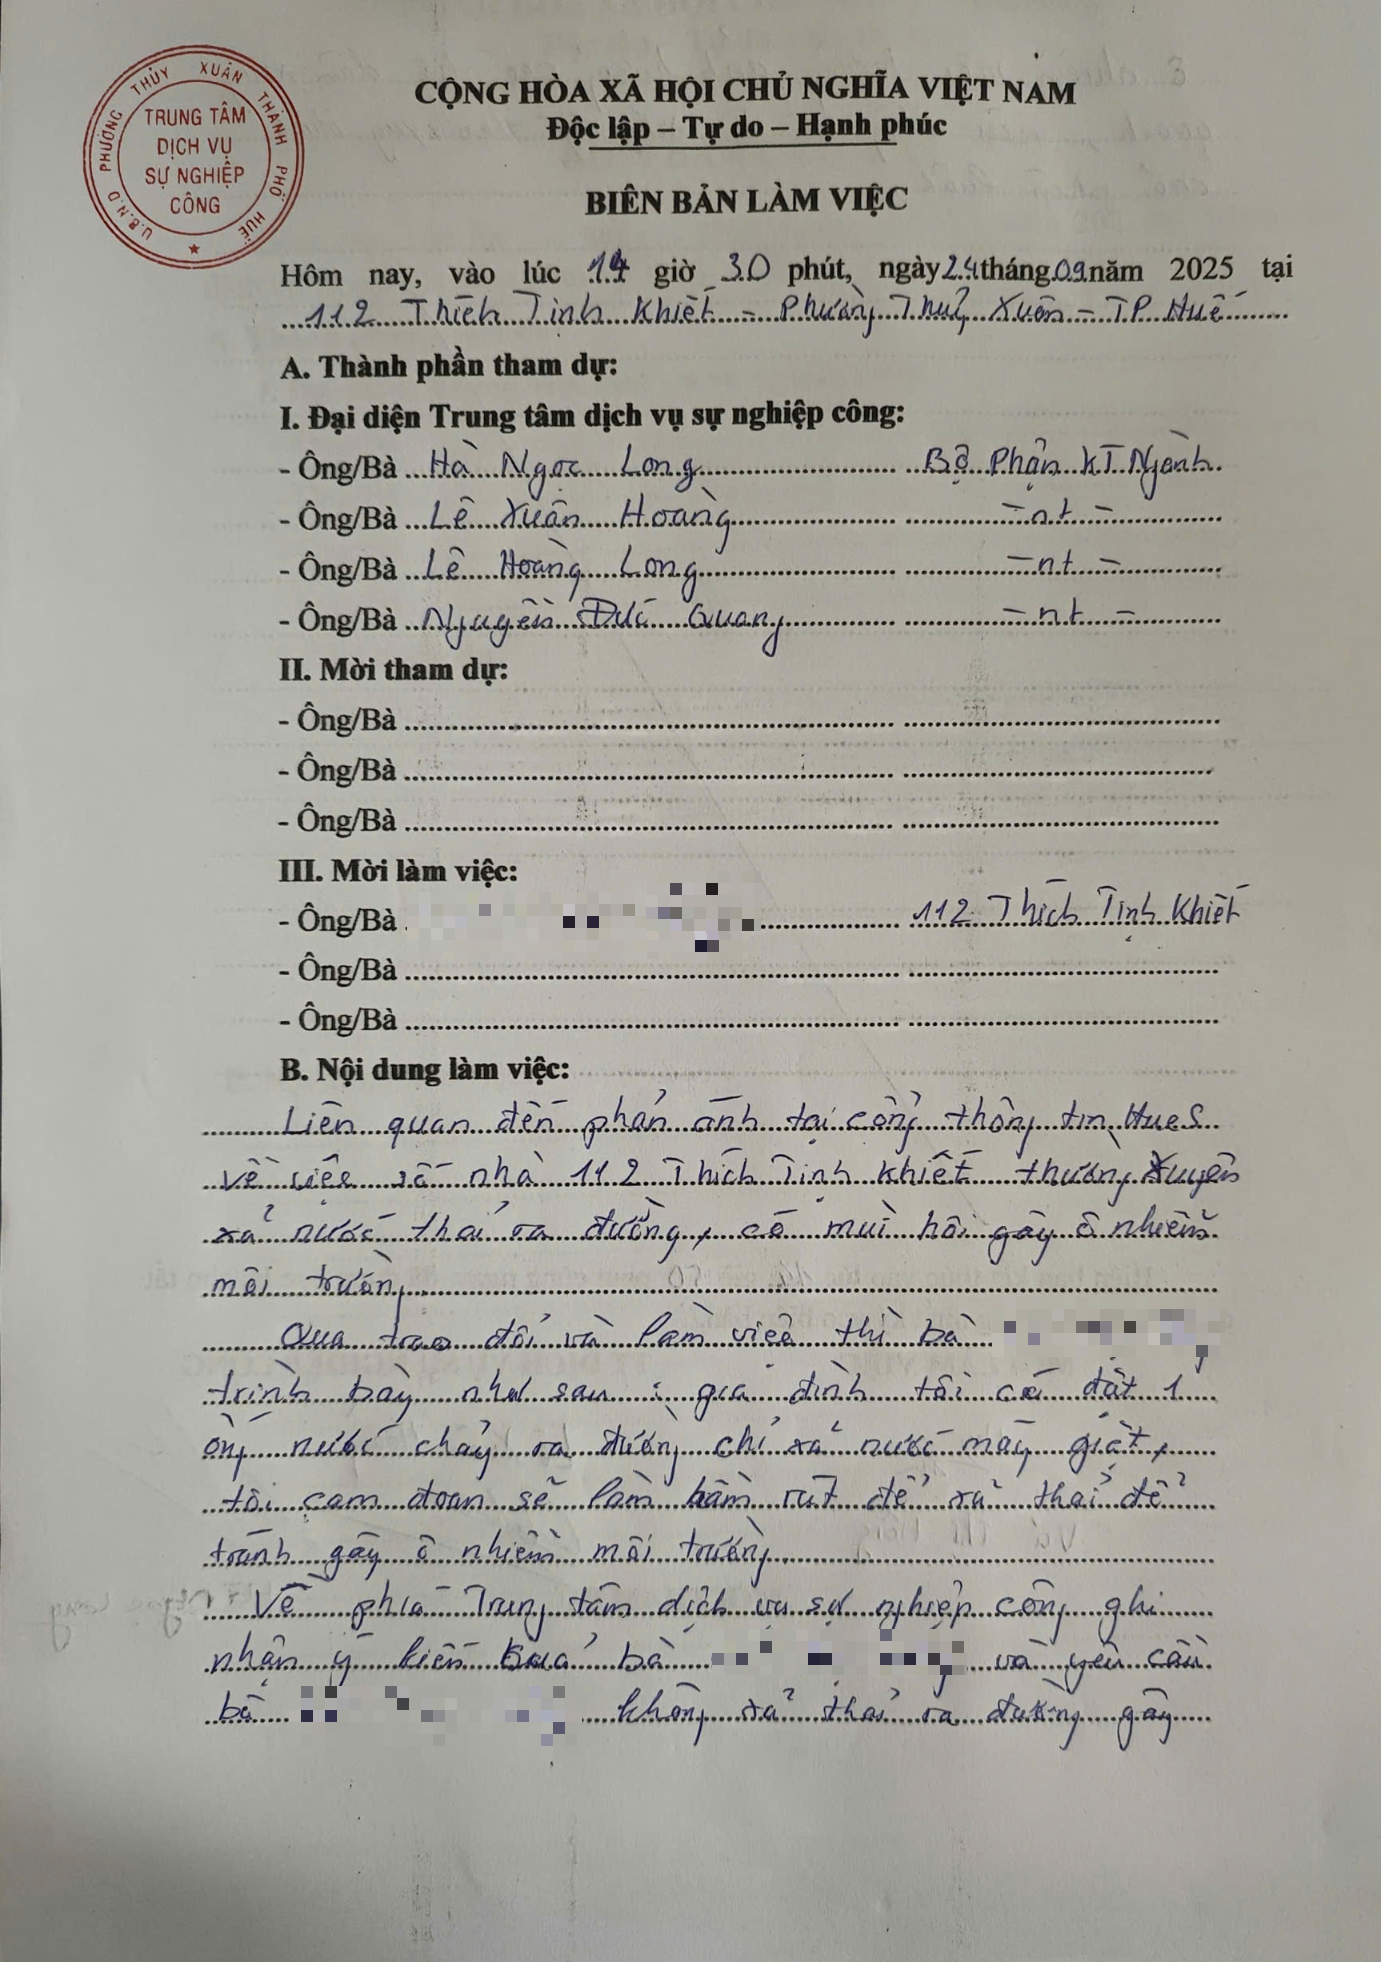 U.B.N.D PHƯỜNG THỦY XUÂN THÀNH PHỐ HUẾ
TRUNG TÂM
DỊCH VỤ
SỰ NGHIỆP
CÔNG
CỘNG HÒA XÃ HỘI CHỦ NGHĨA VIỆT NAM
Độc lập – Tự do – Hạnh phúc
BIÊN BẢN LÀM VIỆC
Hôm nay, vào lúc 14 giờ 30 phút, ngày 24 tháng 09 năm 2025 tại
112 Thích Tịnh Khiết – Phường Thuỷ Xuân – TP Huế
A. Thành phần tham dự:
I. Đại diện Trung tâm dịch vụ sự nghiệp công:
- Ông/Bà Hà Ngọc Long Bộ Phận KT Ngành
- Ông/Bà Lê Xuân Hoàng – nt –
- Ông/Bà Lê Hoàng Long – nt –
- Ông/Bà Nguyễn Đức Quang – nt –
II. Mời tham dự:
- Ông/Bà
- Ông/Bà
- Ông/Bà
III. Mời làm việc:
- Ông/Bà 112 Thích Tịnh Khiết
- Ông/Bà
- Ông/Bà
B. Nội dung làm việc:
Liên quan đến phản ánh tại cổng thông tin HueS
về việc số nhà 112 Thích Tịnh Khiết thường xuyên
xả nước thải ra đường, có mùi hôi gây ô nhiễm
môi trường.
Qua trao đổi và làm việc thì bà
trình bày như sau: gia đình tôi có đặt 1
ống nước chảy ra đường chỉ xả nước máy giặt,
tôi cam đoan sẽ làm hầm rút để xả thải để
tránh gây ô nhiễm môi trường.
Về phía Trung tâm dịch vụ sự nghiệp công ghi
nhận ý kiến của bà và yêu cầu
bà không xả thải ra đường gây